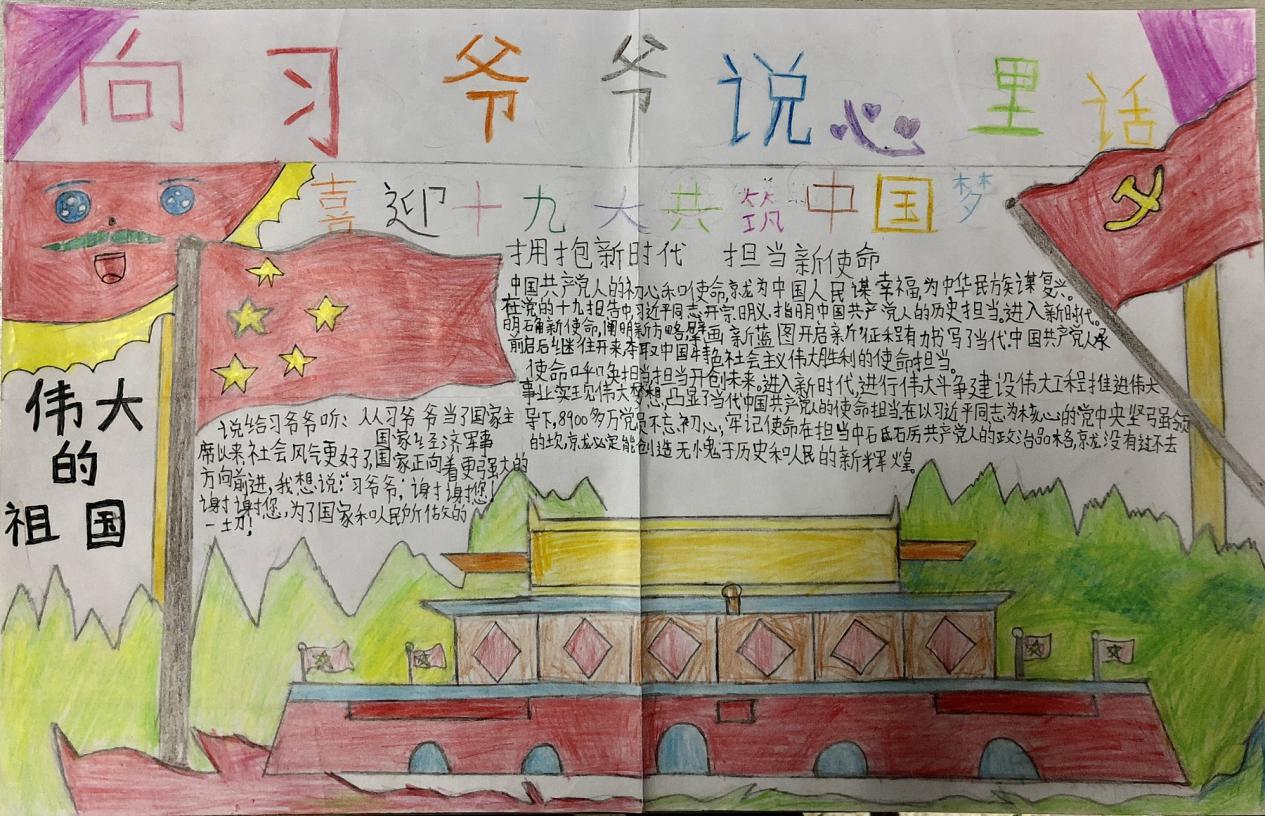 向习爷爷说心里话
喜迎十九大共筑中国梦
拥抱新时代 担当新使命
中国共产党人的初心和使命,就为中国人民谋幸福,为中华民族谋复兴。
在党的十九报告中,习近平同志开宗明义,指明中国共产党人的历史担当。进入新时代。
明确新使命,阐明新方略,擘画新蓝图开启新征程有力书写了当代中国共产党人承
前启后继往开来夺取中国特色社会主义伟大胜利的使命担当。
使命呼唤担当担当开创未来。进入新时代,进行伟大斗争建设伟大工程推进伟大
事业实现伟大梦想,凸显了当代中国共产党的使命担当在以习近平同志为核心的党中央坚强领
导下,8900多万党员不忘初心,牢记使命在担当中砥砺共产党人的政治品格,就没有过不去
的坎,就必定能创造无愧于历史和人民的新辉煌。
说给习爷爷听:从习爷爷当了国家主
席以来社会风气更好了,国家经济军事
国家正向着更强大的
方向前进,我想说"习爷爷",谢谢您!
谢谢您,为了国家和人民所做的
一切!
伟大
的
祖国